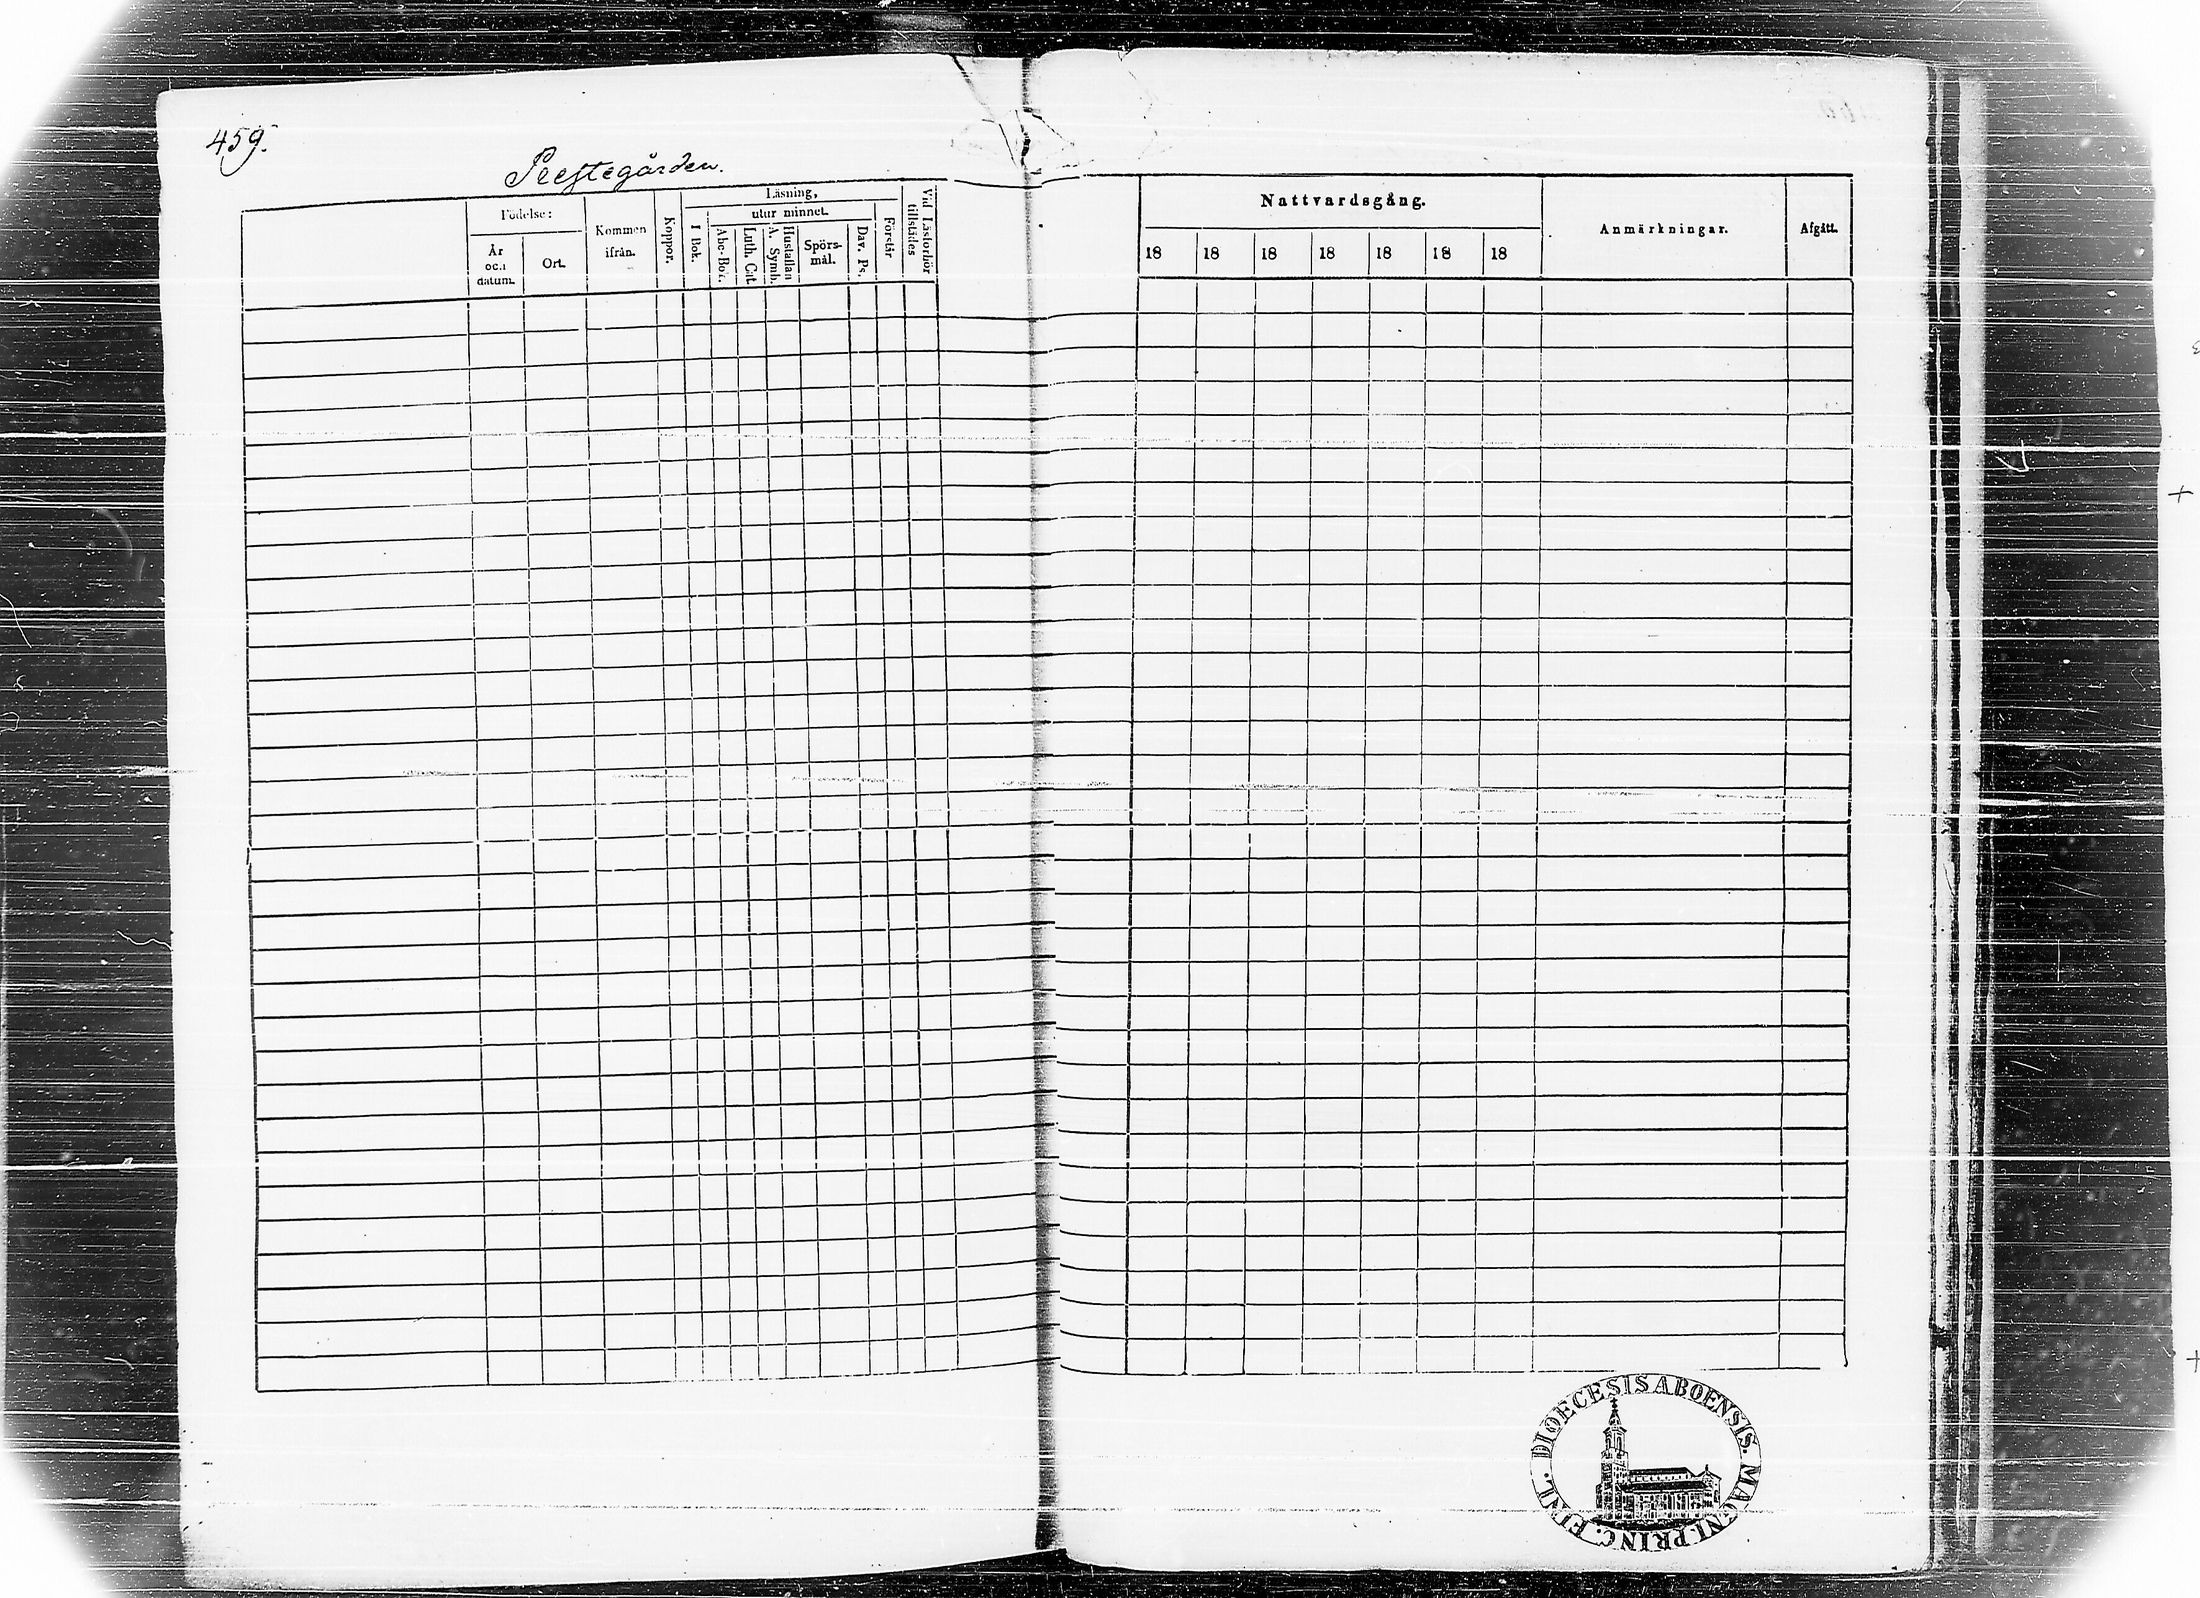 459.
Prestegården.
Födelse:
År och datum.
Ort.
Kommen ifrån.
Koppor.
Läsning,
I Bok.
utur minnet.
Abc-Bok.
Luth. Cat.
Hustaflan A. Symb.
Spörs-
mål.
Dav. Ps.
Förstår
Vid Läsförhör tillstädes
Nattvardsgång.
18 18 18 18 18 18 18
Anmärkningar.
Afgått.
DIOECESIS ABOENSIS. MAGNI. PRINC. FINL.